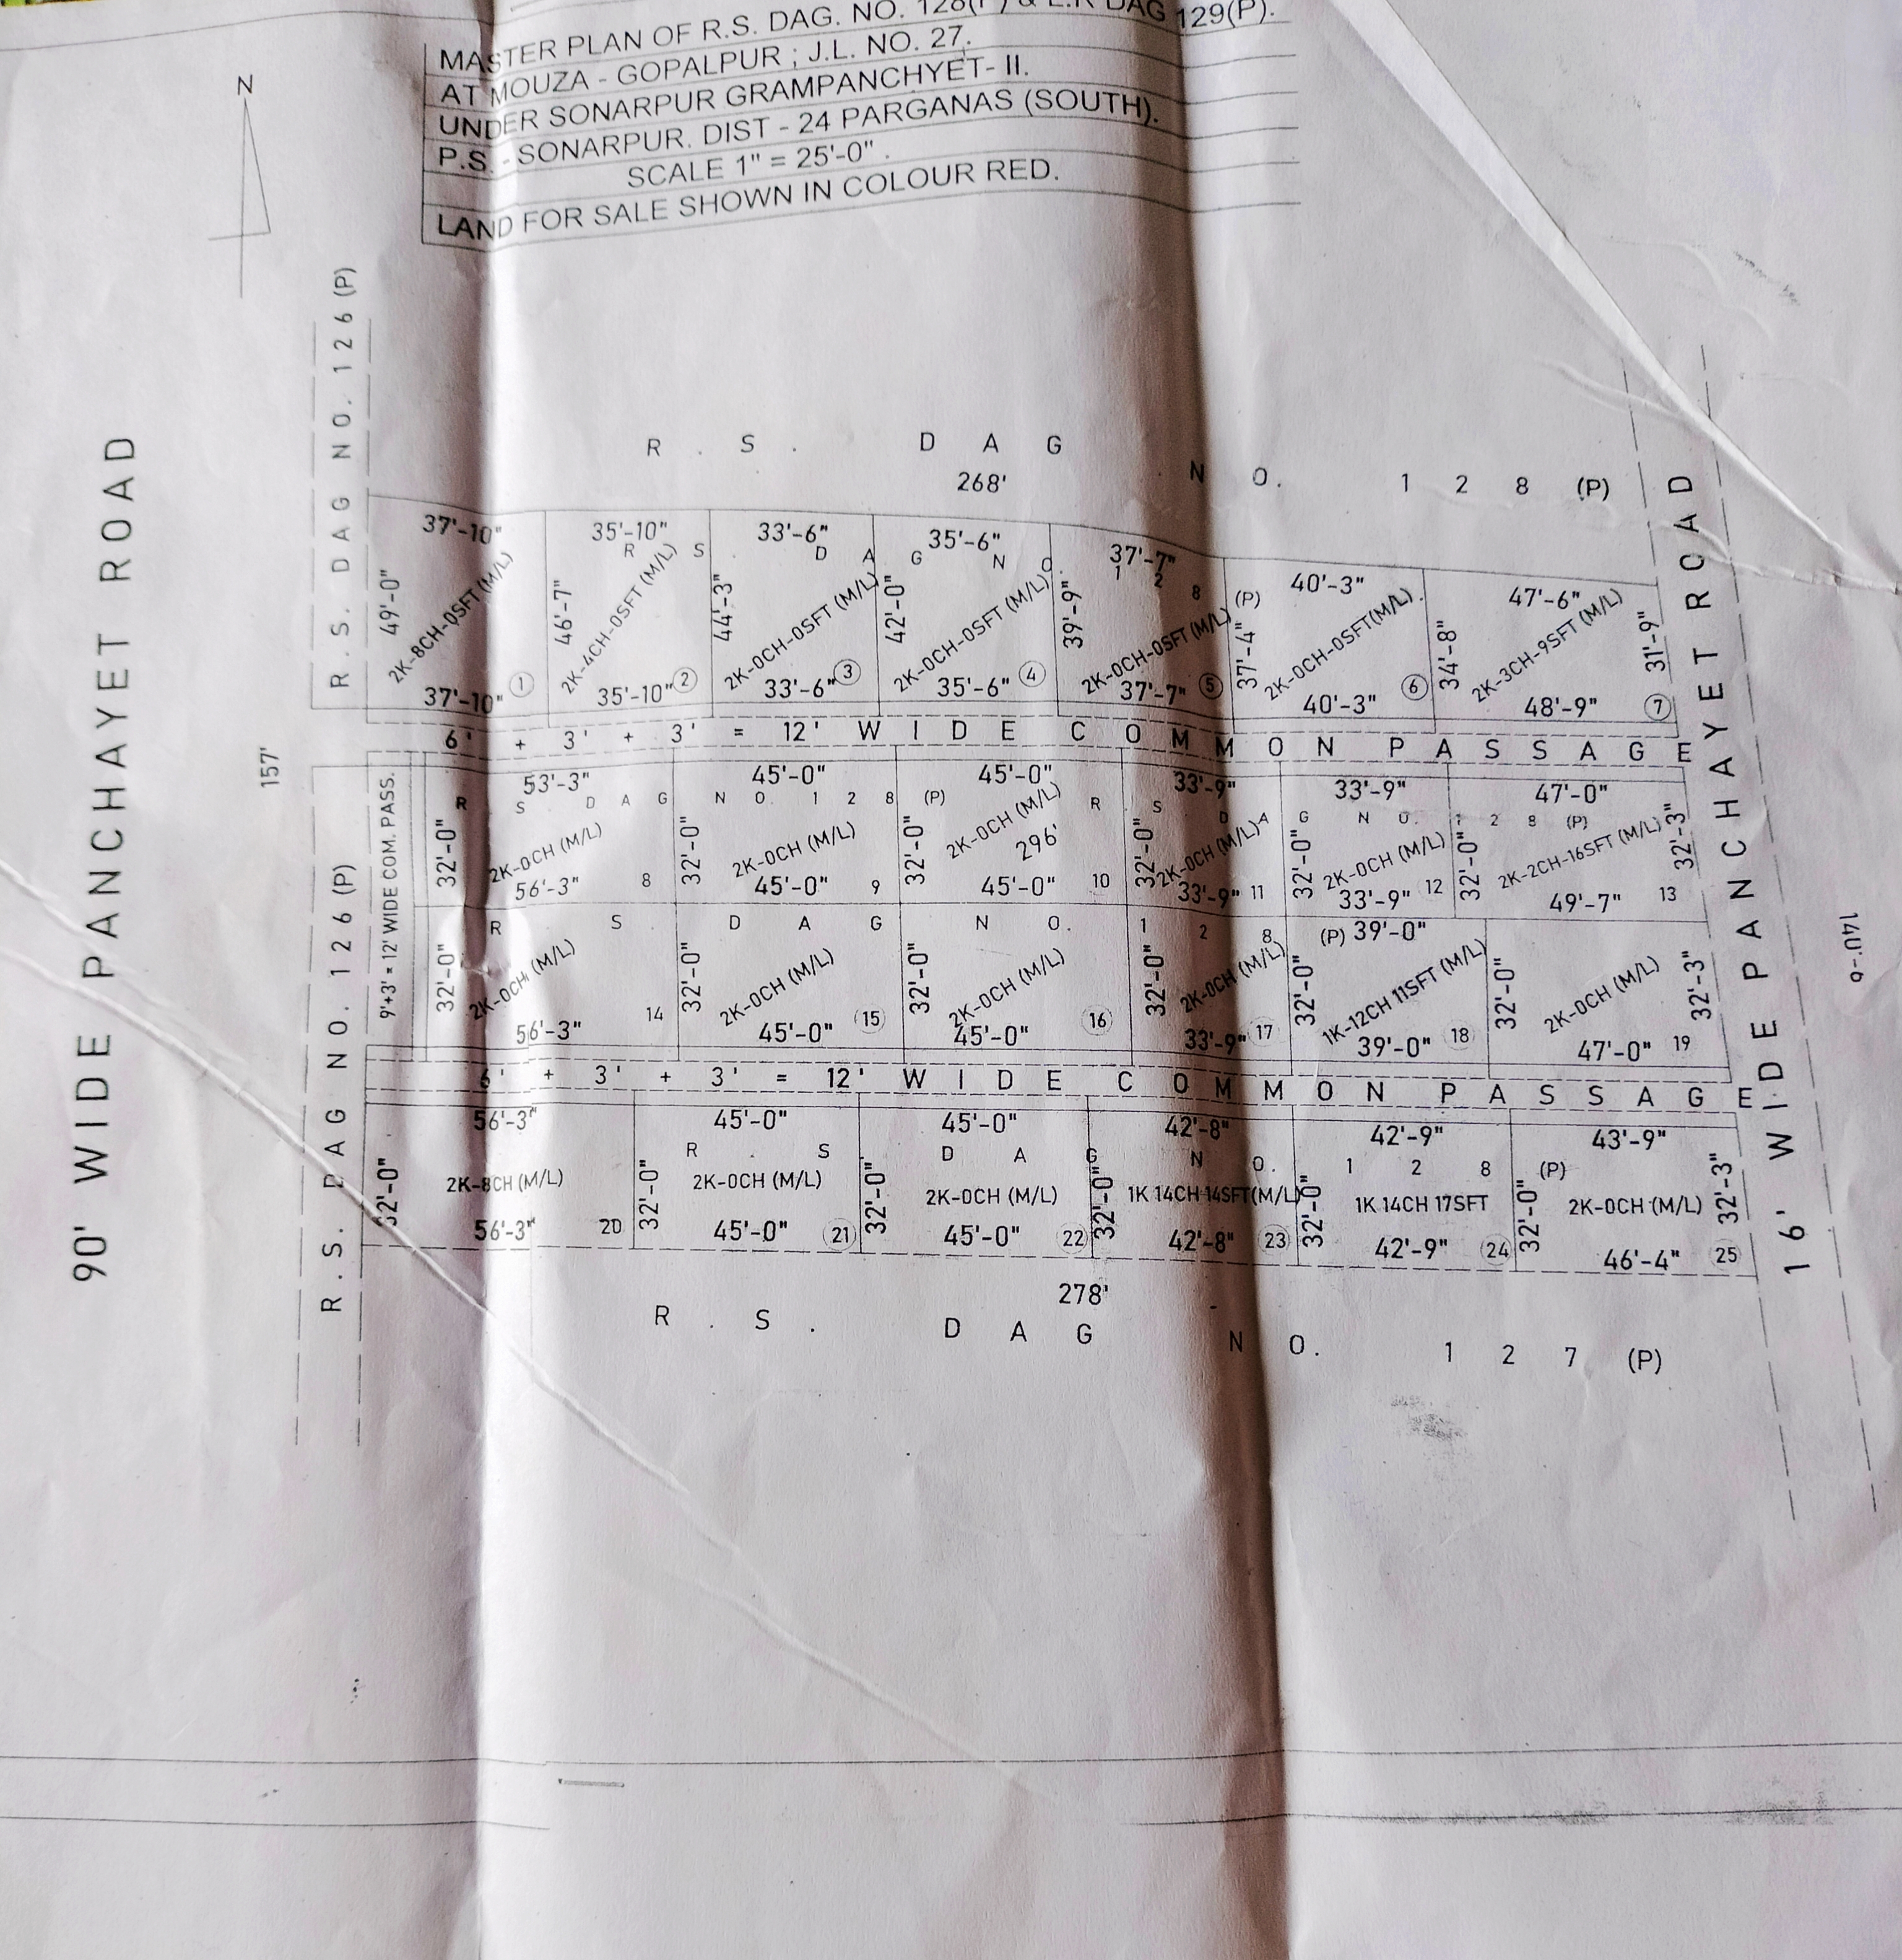 MASTER PLAN OF R.S. DAG. NO. 128(P) & L.R DAG 129(P).
AT MOUZA - GOPALPUR ; J.L. NO. 27.
UNDER SONARPUR GRAMPANCHYET- II.
P.S. - SONARPUR. DIST - 24 PARGANAS (SOUTH).
SCALE 1" = 25'-0" .
LAND FOR SALE SHOWN IN COLOUR RED.
N
90' WIDE PANCHAYET ROAD
R.S. DAG NO. 126 (P)
157'
R.S. DAG NO. 126 (P)
R . S . D A G N O. 1 2 8 (P)
268'
37'-10" 35'-10" 33'-6" 35'-6" 37'-7" 40'-3" 47'-6"
R S D A G N O 1 2 8 (P)
49'-0" 46'-7" 44'-3" 42'-0" 39'-9" 37'-4" 34'-8" 31'-9"
2K-8CH-0SFT (M/L) 2K-4CH-0SFT (M/L) 2K-0CH-0SFT (M/L) 2K-0CH-0SFT (M/L) 2K-0CH-0SFT (M/L) 2K-0CH-0SFT(M/L) 2K-3CH-9SFT (M/L)
37'-10" 1 35'-10" 2 33'-6" 3 35'-6" 4 37'-7" 5 40'-3" 6 48'-9" 7
6' + 3' + 3' = 12' W I D E C O M M O N P A S S A G E
9'+3' = 12' WIDE COM. PASS.
53'-3" 45'-0" 45'-0" 33'-9" 33'-9" 47'-0"
R S D A G N O. 1 2 8 (P) R S D A G N O. 1 2 8 (P)
32'-0" 32'-0" 32'-0" 32'-0" 32'-0" 32'-0" 32'-3"
2K-0CH (M/L) 2K-0CH (M/L) 2K-0CH (M/L) 2K-0CH (M/L) 2K-0CH (M/L) 2K-2CH-16SFT (M/L)
296'
56'-3" 8 45'-0" 9 45'-0" 10 33'-9" 11 33'-9" 12 49'-7" 13
R S D A G N O. 1 2 8 (P) 39'-0"
32'-0" 32'-0" 32'-0" 32'-0" 32'-0" 32'-0" 32'-3"
2K-0CH (M/L) 2K-0CH (M/L) 2K-0CH (M/L) 2K-0CH (M/L) 1K-12CH 11SFT (M/L) 2K-0CH (M/L)
56'-3" 14 45'-0" 15 45'-0" 16 33'-9" 17 39'-0" 18 47'-0" 19
6' + 3' + 3' = 12' W I D E C O M M O N P A S S A G E
56'-3" 45'-0" 45'-0" 42'-8" 42'-9" 43'-9"
R . S D A G N O. 1 2 8 (P)
32'-0" 32'-0" 32'-0" 32'-0" 32'-0" 32'-0" 32'-3"
2K-8CH (M/L) 2K-0CH (M/L) 2K-0CH (M/L) 1K 14CH 14SFT(M/L) 1K 14CH 17SFT 2K-0CH (M/L)
56'-3" 20 45'-0" 21 45'-0" 22 42'-8" 23 42'-9" 24 46'-4" 25
278'
R . S . D A G N O. 1 2 7 (P)
16' WIDE PANCHAYET ROAD